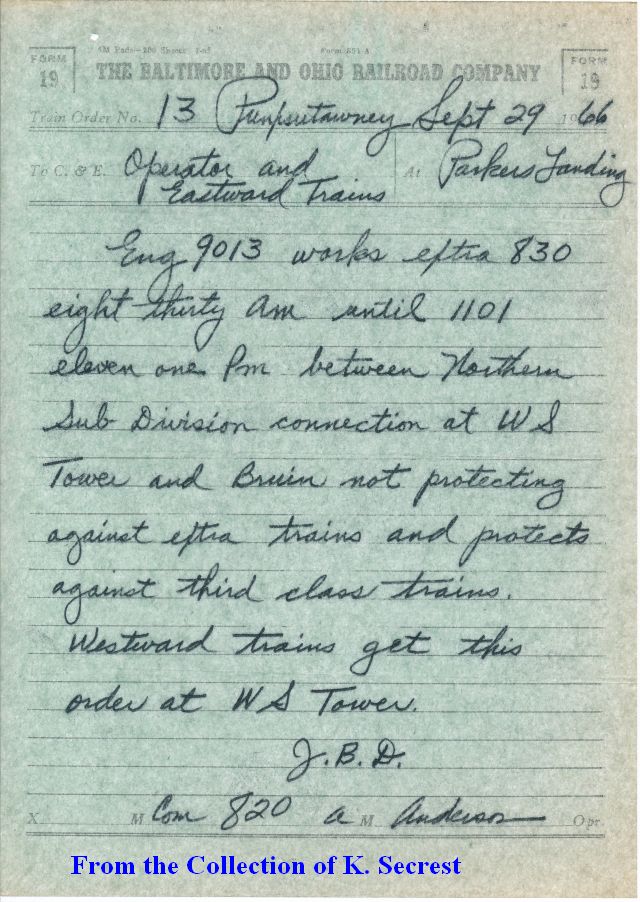 4M Pads—200 Sheets 1-64 Form 851-A
FORM 19 THE BALTIMORE AND OHIO RAILROAD COMPANY FORM 19
Train Order No. 13 Punxsutawney Sept 29 1966
To C. & E. Operator and At Parkers Landing
Eastward Trains
Eng 9013 works extra 830
eight thirty am until 1101
eleven one Pm between Northern
Sub Division connection at W S
Tower and Bruin not protecting
against extra trains and protects
against third class trains.
Westward trains get this
order at W S Tower.
J.B.D.
X M Com 820 a M Anderson Opr
From the Collection of K. Secrest